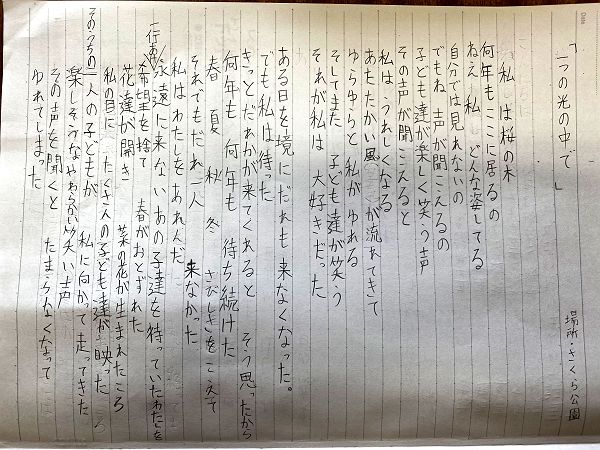 「一つの光の中で」
場所・さくら公園
私は桜の木
何年もここに居るの
ねえ 私 どんな姿してる
自分では見れないの
でもね 声が聞こえるの
子ども達が楽しく笑う声
その声が聞こえると
私は うれしくなる
あたたかい風が流れてきて
ゆらゆらと 私が ゆれる
そしてまた 子ども達が笑う
それが私は 大好きだった
ある日を境にだれも来なくなった。
でも私は待った
きっとだれかが来てくれると そう思ったから
何年も 何年も 待ち続けた
春 夏 秋 冬 さびしさをこえて
それでもだれ一人 来なかった
私はわたしをあわれんだ
永遠に来ない あの子達を待っていたわたしを
一行あける
希望を捨て 春がおとずれた
花達が開き 菜の花が生まれたころ
私の目に たくさんの子ども達が映った
そのうちの一人の子どもが 私に向かって走ってきた
楽しそうなやわらかい笑い声
その声を聞くと たまらなくなって
ゆれてしまった